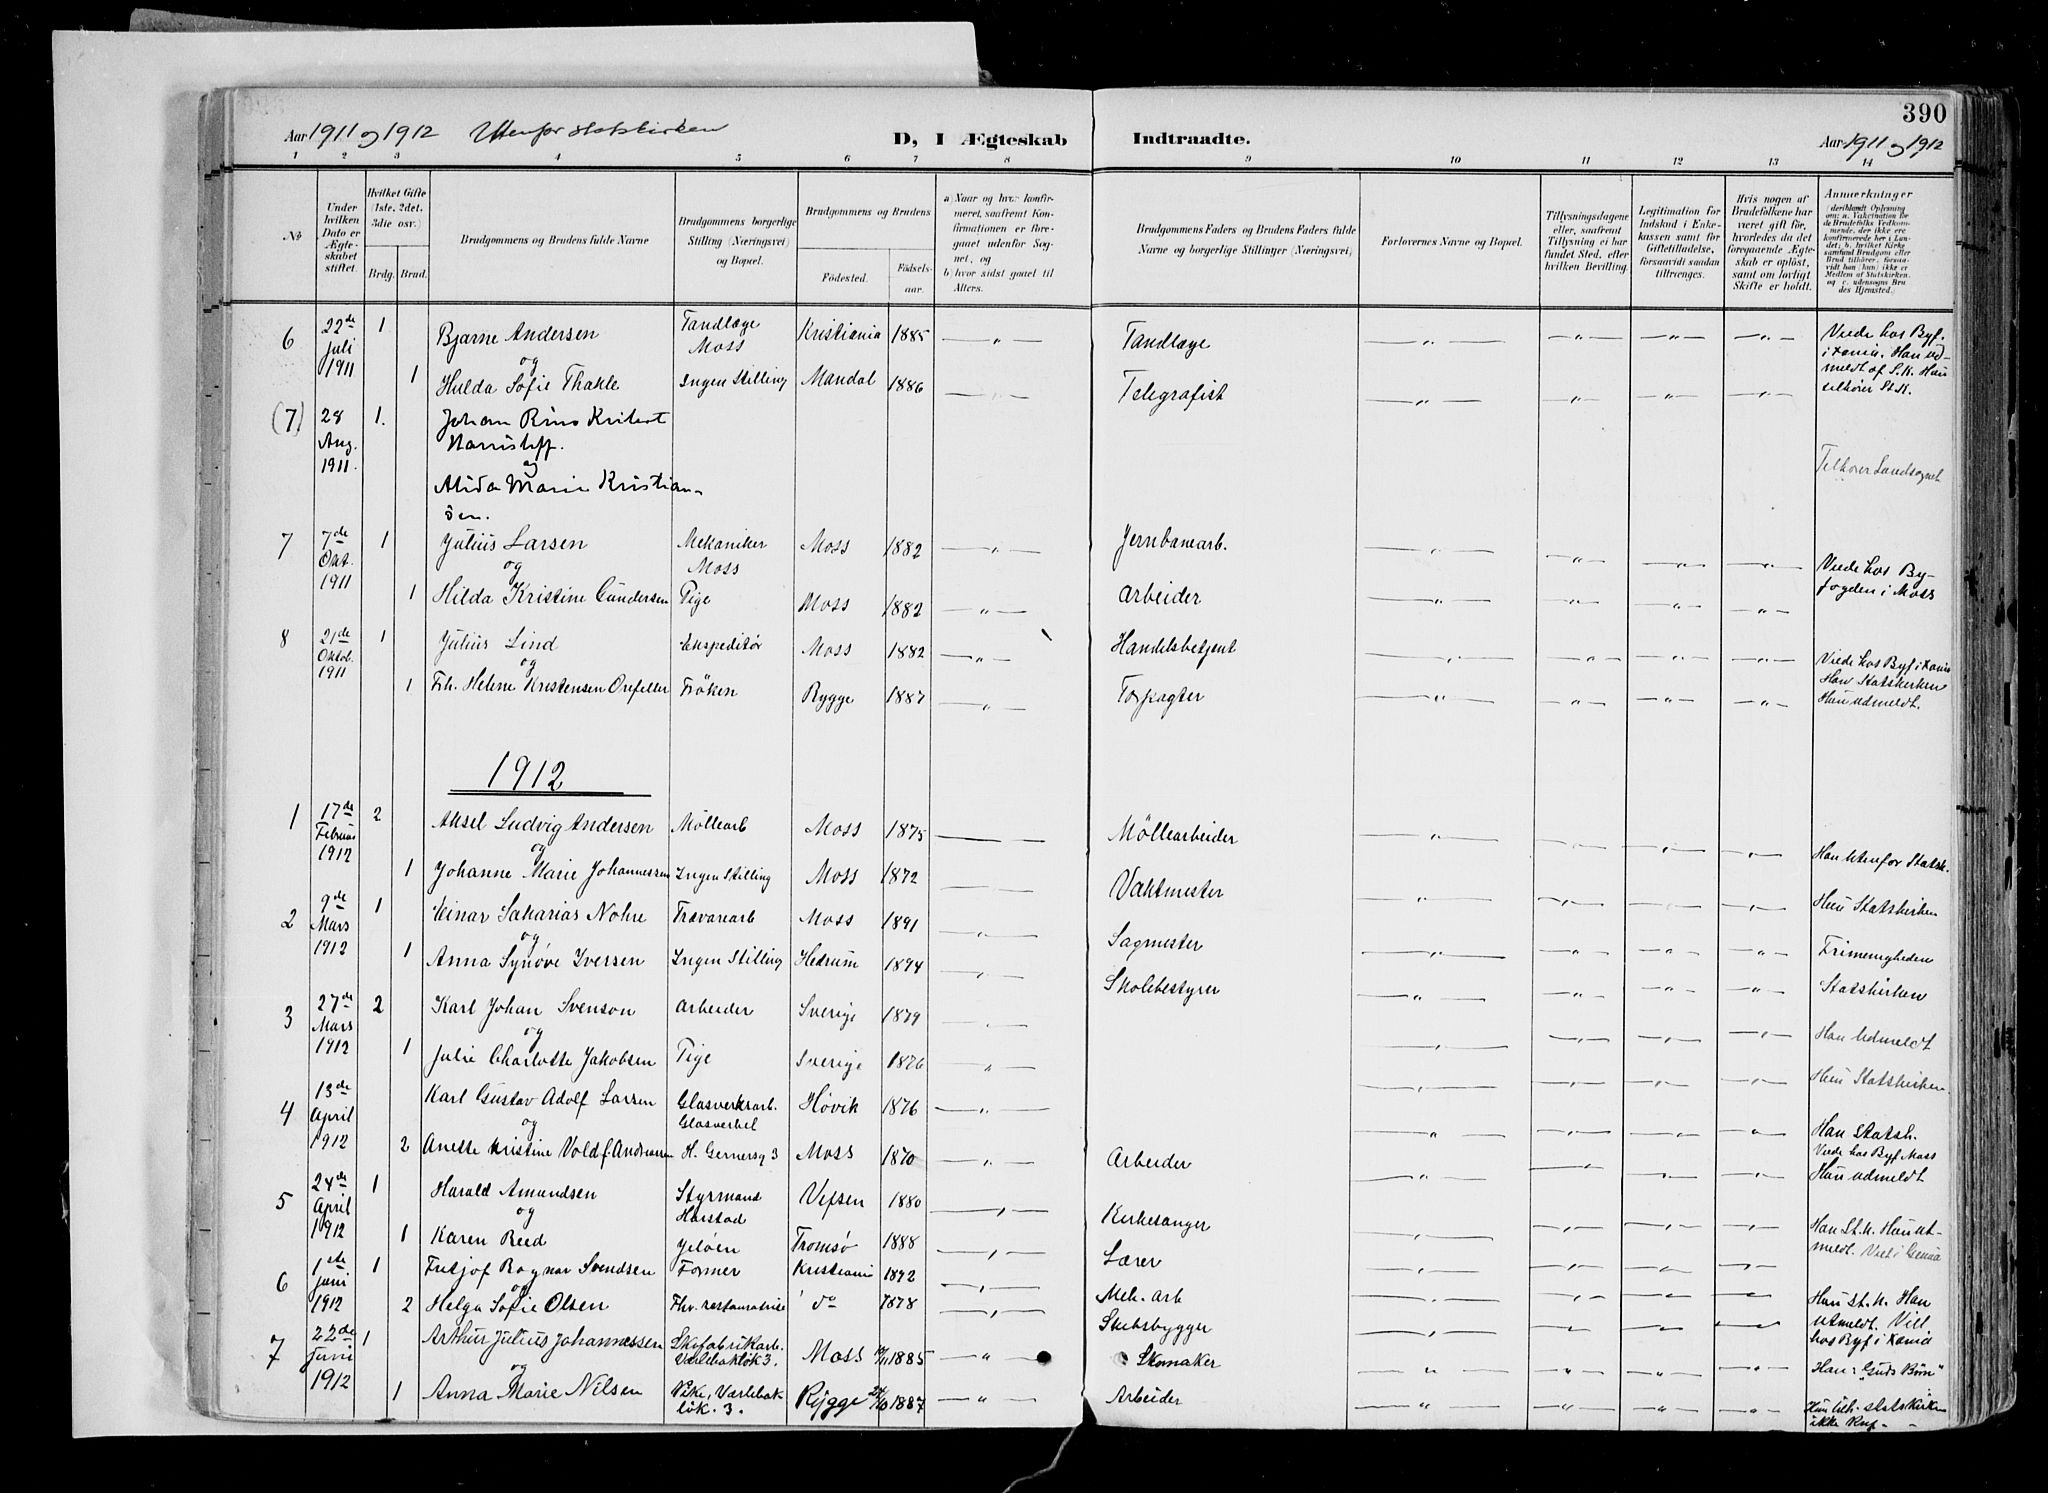 390
Aar 1911 og 1912 Utenfor statskirken D, I Ægteskab Indtraadte. Aar 1911 og 1912
1 2 3 4 5 6 7 8 9 10 11 12 13 14
No
Under hvilken Dato er Ægteskabet stiftet.
Hvilket Gifte (1ste, 2det, 3die osv.)
Brdg. Brud.
Brudgommens og Brudens fulde Navne
Brudgommens borgerlige Stilling (Næringsvei) og Bopæl.
Brudgommens og Brudens
Födested. Födsels-aar.
a) Naar og hvor konfirmeret, saafremt Konfirmationen er foregaaet udenfor Sognet, og
b) hvor sidst gaaet til Alters.
Brudgommens Faders og Brudens Faders fulde Navne og borgerlige Stillinger (Næringsvei)
Forlovernes Navne og Bopæl.
Tillysningsdagene eller, saafremt Tillysning ei har fundet Sted, efter hvilken Bevilling.
Legitimation for Indskud i Enkekassen samt for Giftetilladelse, forsaavidt saadan tiltrænges.
Hvis nogen af Brudefolkene har været gift før, hvorledes da det foregaaende Ægteskab er oplöst, samt om lovligt Skifte er holdt.
Anmerkninger
6 22de Juli 1911 1 Bjarne Andersen Tandlæge Moss Kristiania 1885 Tandlæge Viede hos Byf. i Xania. Han udmeldt af S.K. Hun tilhører St.K.
og
1 Hulda Sofie Thakle Ingen Stilling Mandal 1886 Telegrafist
(7) 28 Aug. 1911. 1. Johan
og
Alida Marie Kristiansen. Tilhører Landsognet
7 7de Okt. 1911 1 Julius Larsen Mekaniker Moss Moss 1882 Jernbanearb. Viede hos Byfogden i Moss
og
1 Hilda Kristine Gundersen Pige Moss 1882 Arbeider
8 21de Oktob. 1911 1 Julius Lind Ekspeditör Moss 1882 Handelsbetjent Viede hos Byf i Xania
og Han Statskirken
1 Frk. Helene Kristensen Orefeller Fröken Rygge 1887 Hun udmeldt.
1912
1 17de Februar 1912 2 Aksel Ludvig Andersen Möllearb Moss 1875 Möllearbeider Han Utenfor Statsk.
og
1 Johanne Marie Johannessen Ingen Stilling Moss 1872 Vaktmester Hun Statskirken
2 9de Mars 1912 1 Einar Sakarias Nohre Trævarearb Moss 1891 Sagmester Frimenigheden
og
1 Anna Synøve Iversen Ingen Stilling Hedrum 1894 Skolebestyrer Statskirken
3 27de Mars 1912 2 Karl Johan Svenson Arbeider Sverige 1879 Han Udmeldt
og
1 Julie Charlotte Jakobsen Pige Sverige 1876 Hun Statskirken
4 13de April 1912 Karl Gustav Adolf Larsen Glasverksarb. Glasverket Høvik 1876 Han Statsk.
og Viede hos Byf Moss
2 Anette Kristine Vold f. Andresen H. Gernersg 3 Moss 1870 Arbeider Hun udmeldt
5 24de April 1912 1 Harald Amundsen Styrmand Harstad Vefsen 1880 Kirkesanger Han St.K. Hun utmeldt.
og
1 Karen Reed Jeløen Tromsø 1888 Lærer
6 1ste Juni 1912 1 Fritjof Ragnar Svendsen Former Kristiania 1892 Mek. arb Hun St. K. Han Utmeldt. Viet hos Byf i Xania
og
2 Helga Sofie Olsen Fhv. restauratrise do 1878 Skibsbygger
7 22de Juni 1912 1 Arthur Julius Johannessen Skofabrikarb. Værlebaklök 3. Moss 1885 Skomaker Han: "Guds Börn"
og
1 Anna Marie Nilsen Pike, Værlebaklök. 3. Rygge 1887 Arbeider Hun tilh. statskirken